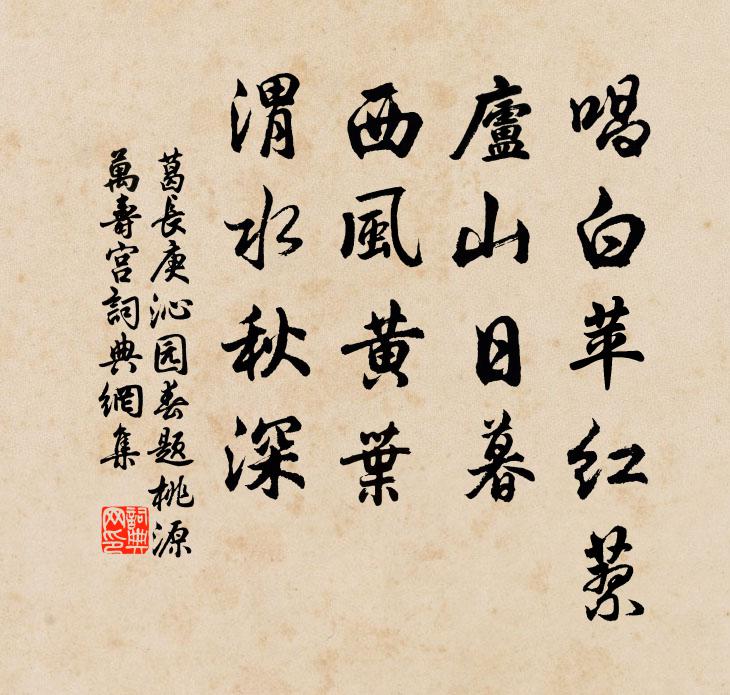 唱白苹红蓼
廬山日暮
西風黄葉
渭水秋深
葛長庚沁园春题桃源
萬壽宫詞典網集
詞典
网印